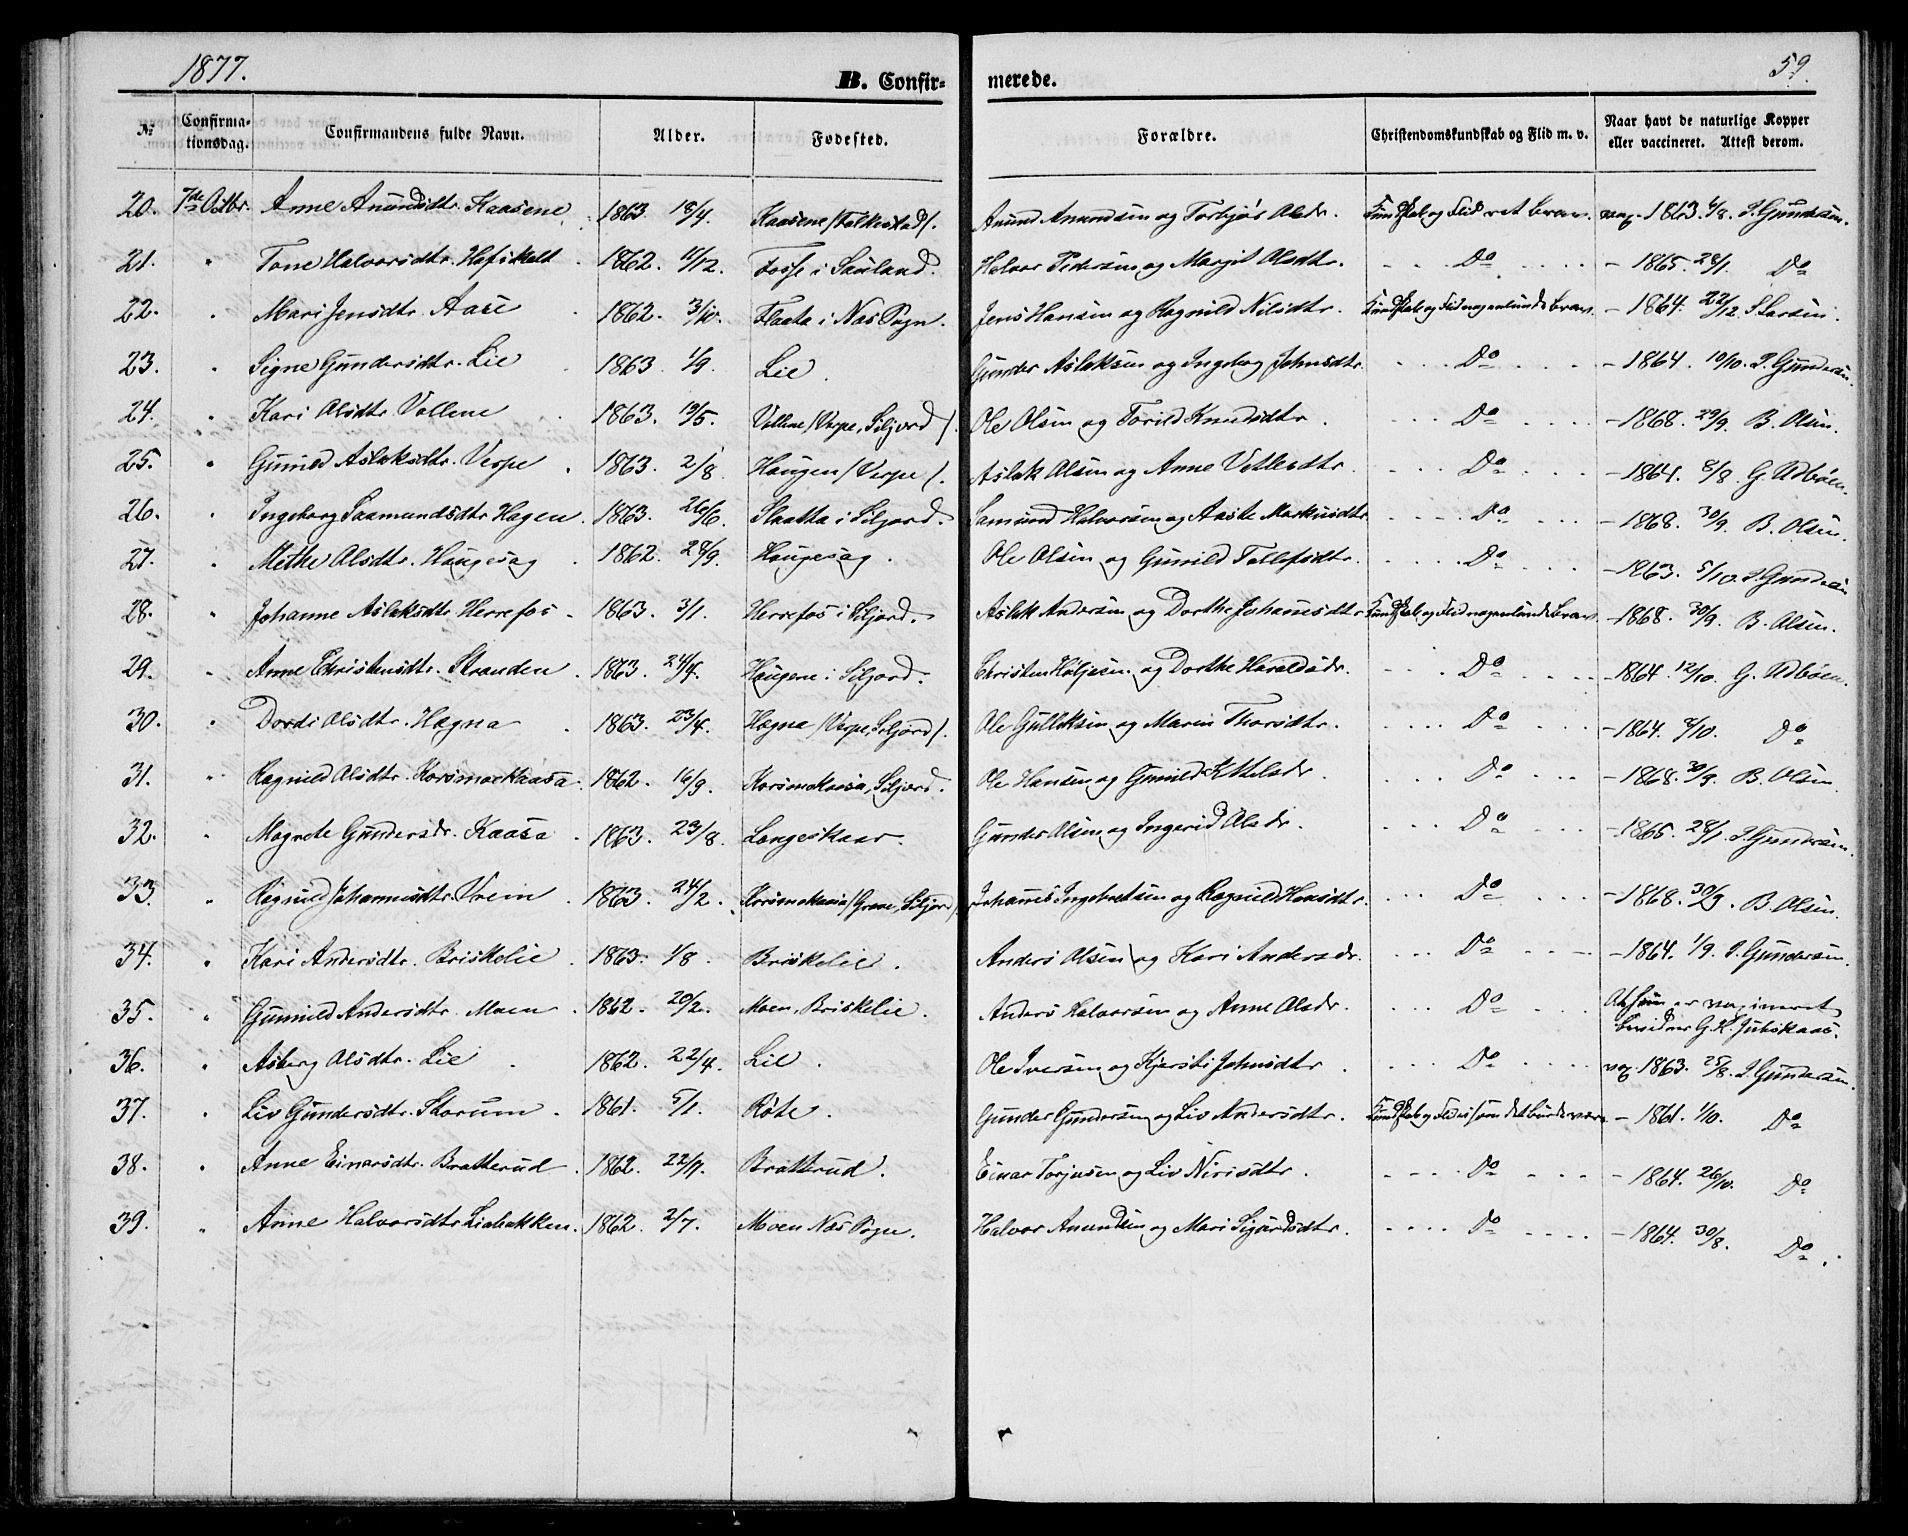 1877.
B. Confirmerede.
59.
№ Confirmationsdag. Confirmandens fulde Navn. Alder. Fødested. Forældre. Christendomskundskab og Flid m. v. Naar havt de naturlige Kopper eller vaccineret. Attest derom.
20. 7de Octbr. Anne Anundsdtr. Kaasene 1863 18/4. Kaasene /Folkestad/. Anund Anundsen og Torbjør Olsdr. Kundskab og Flid ret brav. vax. 1863 6/8. J. Gundersen.
21. " Tone Halvorsdtr. 1862. 11/12. Fosse i Sauland. Halvor Pedersen og Margit Olsdtr. Do - 1865. 28/1. Do
22. " Mari Jensdtr. Aase 1862. 3/10. Flaata i Næs Sogn. Jens Hansen og Ragnild Nilsdtr. Kundskab og Flid nogenlunde brav. - 1864. 22/12 Larsen.
23. " Signe Gundersdtr. Lie 1863 1/9. Lie. Gunder Aslaksen og Ingeborg Johnsdtr. Do - 1864. 10/10. J. Gundersen.
24. " Kari Olsdtr. Vollene 1863. 19/5. Vollene /Verpe, Siljord/. Ole Olsen og Torild Knudsdtr. Do - 1868. 29/9. B. Olsen.
25. " Gunild Aslaksdtr. Verpe 1863. 2/8. Haugen /Verpe/. Aslak Olsen og Anne Vetlesdtr. Do - 1864. 8/8. G. Udbøen.
26. " Ingeborg Saamundsdtr Hagen. 1863. 26/6. Slaatta i Siljord. Samund Halvorsen og Aaste Markusdtr. Do - 1868. 30/9. B. Olsen.
27. " Methe Olsdtr. Haugesag 1862. 28/9. Haugesag. Ole Olsen og Gunild Tollefsdtr. Do - 1863. 5/10. J. Gundersen
28. " Johanne Aslaksdtr. Herrefos. 1863. 3/1. Herrefos i Siljord. Aslak Andersen og Dorthe Johansdtr. Kundskab og Flid nogenlunde brav. - 1868. 30/9. B. Olsen.
29. " Anne Christensdtr. Stranden. 1863. 24/4. Haugene i Siljord. Christen Høljesen og Dorthe Haraldsdr. Do - 1864. 12/10. G. Udbøen.
30. " Dordi Olsdtr. Hægna 1863. 23/4. Hægna /Verpe, Siljord/. Ole Gulliksen og Maren Thorsdtr. Do - 1864. 8/10. Do
31. " Ragnild Olsdtr. Korsmoekaasa. 1862. 16/9. Korsmokaasa, Siljord. Ole Hansen og Gunild Kittelsdr. Do - 1868. 30/9. B. Olsen
32. " Magnete Gundersdr. Kaasa. 1863. 29/8. Langeskaar. Gunder Olsen og Ingerid Olsdr. Do - 1865. 28/1. J. Gundersen.
33. " Ragnild Johannesdtr. Vreim 1863. 24/2. Korsmokaasa /Grave, Siljord/. Johannes Ingebretsen og Ragnild Hansdtr. Do - 1868. 30/9. B. Olsen.
34. " Kari Andersdtr. Briskelie. 1863. 1/8. Briskelie. Anders Olsen og Kari Andersdr. Do - 1864. 1/9. J. Gundersen.
35. " Gunnild Andersdtr. Moen. 1862. 20/2. Moen, Briskelie. Anders Halvorsen og Anne Olsdr. Do At hun er vaxineret
bevidner G. H. Juvskaas.
36. " Asberg Olsdtr. Lie 1862. 22/4. Lie. Ole Iversen og Kjersti Johnsdtr. Do vax. 1863. 25/8. J. Gundersen.
37. " Liv Gundersdtr. Storum. 1861. 5/1. Røte. Gunder Gundersen og Liv Andersdtr. Kundskab og Flid som det burde være - 1861. 1/10. Do
38. " Anne Einersdtr. Bratterud. 1862. 22/9. Bratterud. Einar Torjusen og Liv Nirisdtr. Do - 1864. 26/10. Do
39. " Anne Halvorsdtr Liabakken. 1862. 2/7. Moen Næs Sogn. Halvor Anundsen og Mari Sigurdsdtr. Do - 1864. 30/8. Do.